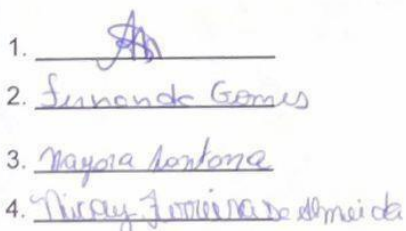 1.
2. Fernanda Gomes
3. Mayara Santana
4. Nicoly Ferreira de Almeida